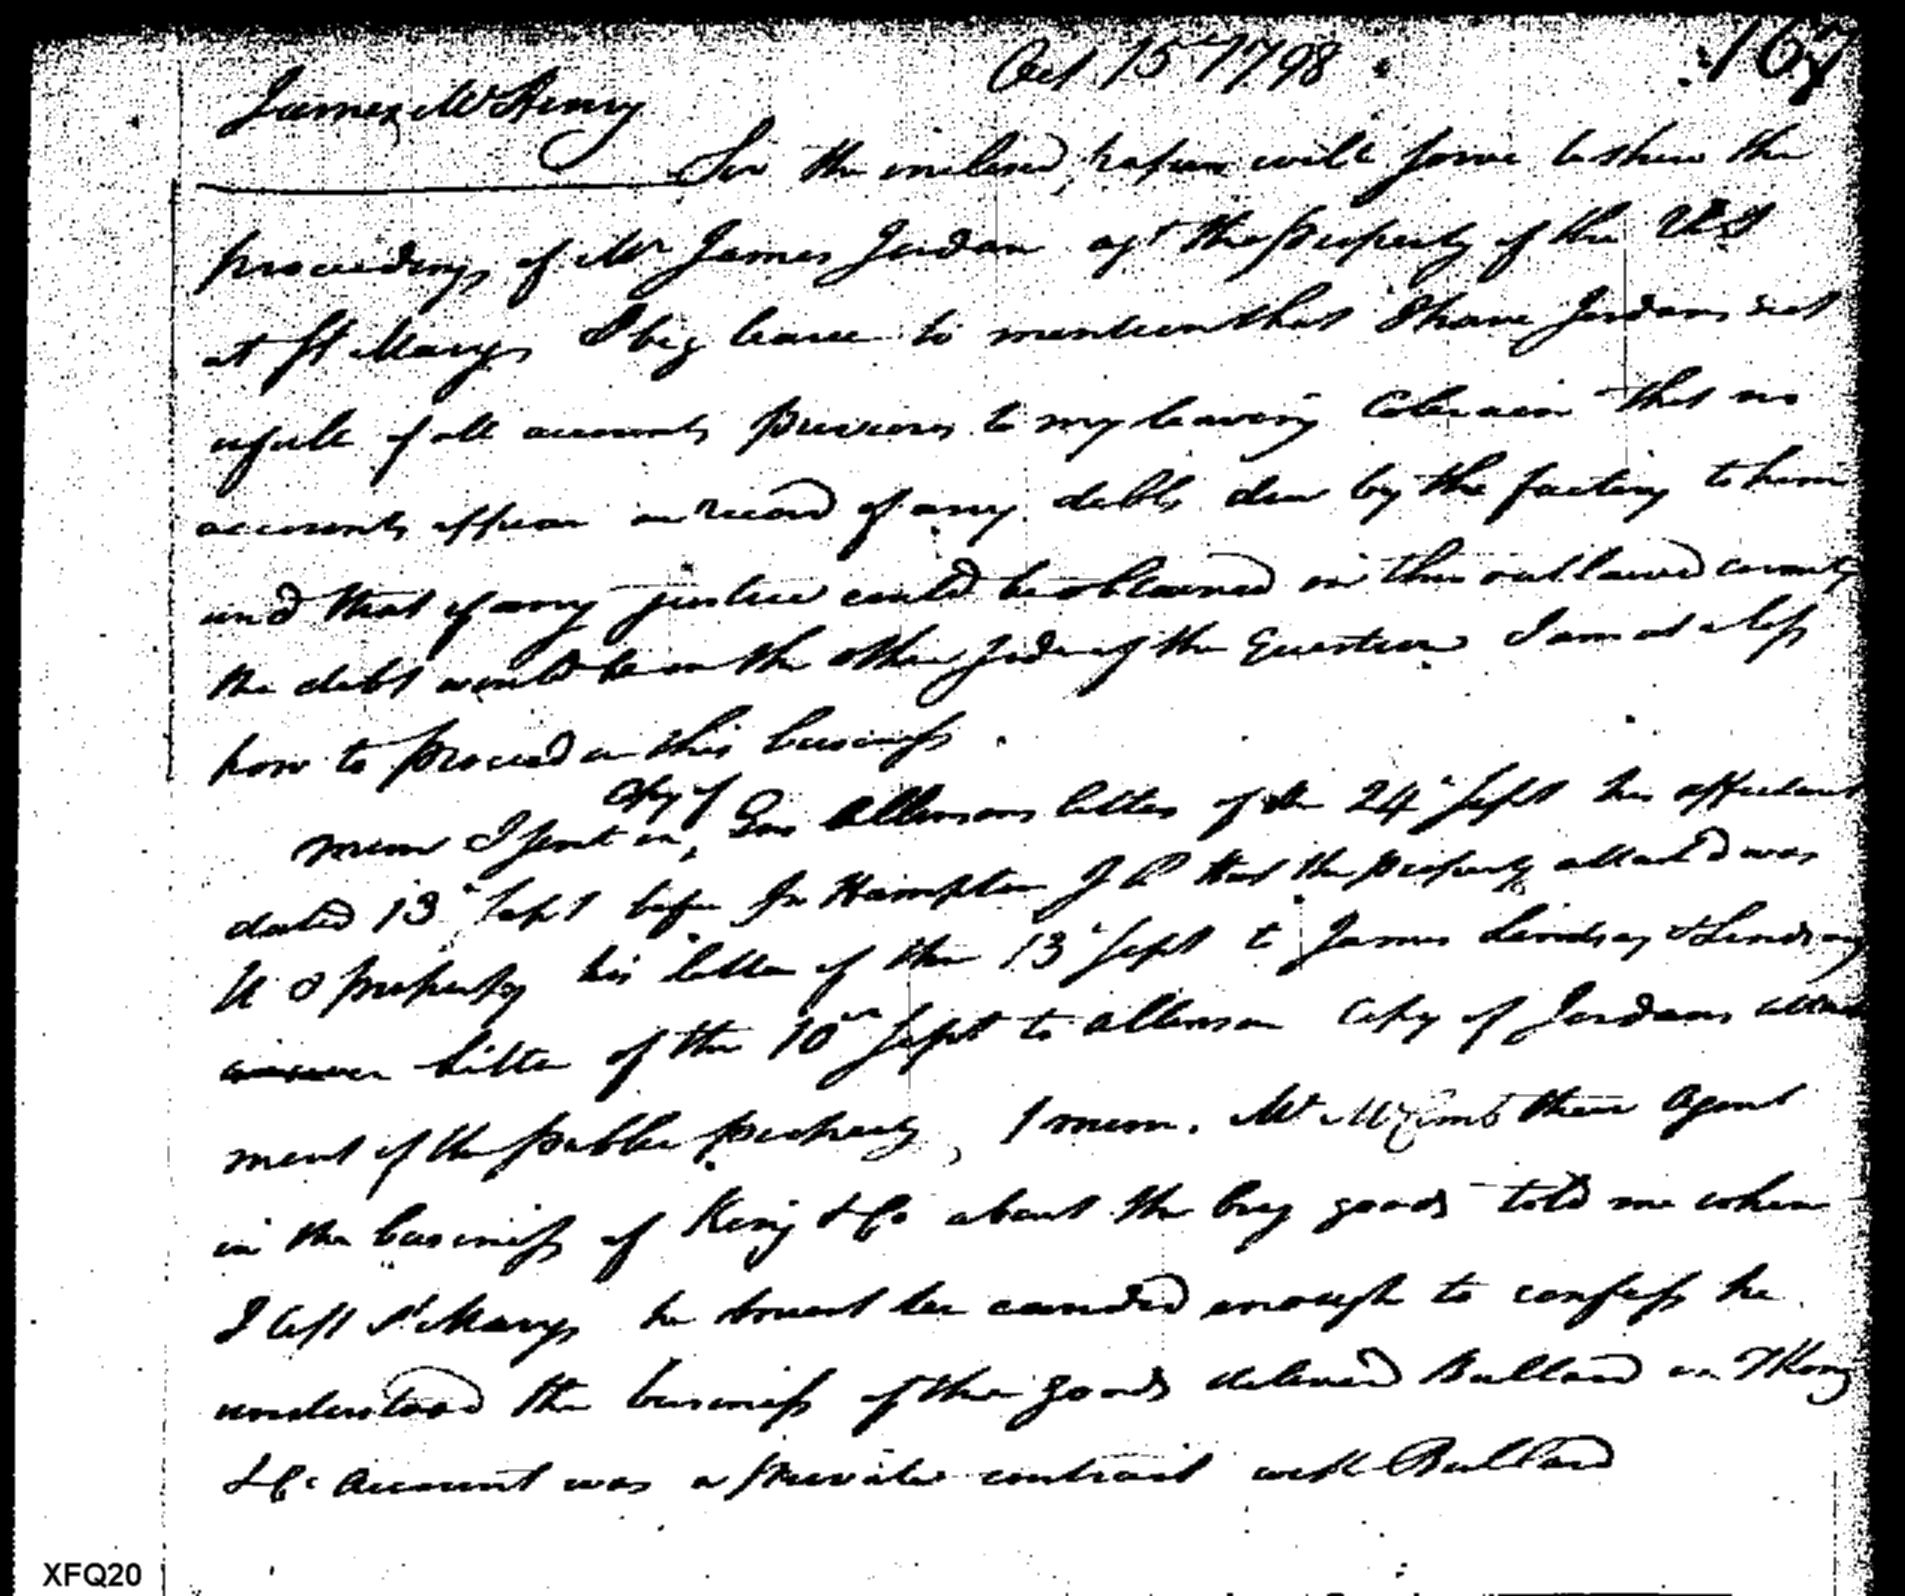 167
Oct 15 1798
James McHenry
Sir the inclosed papers will serve to shew the
proceedings of Mr James Jordan agt the property of the U S
at St Marys I beg leave to mention that I have Jordans rect
in full of all accounts previous to my leaving Colerain that no
accounts appear on record of any debts due by the factory to him
and that if any justice could be obtained in this outlawed county
the debt would be on the other side of the Question I am at a loss
how to proceed in this business.
mem I sent in copy of Geo Allensons letter of the 24 Sept his affidavit
dated 13 Sept before Jn Hampton J P that the property attachd was
U S property his letter of the 13 Sept to James Lindsay & Lindsays
letter of the 10th Sept to Allenson Copy of Jordans attach
ment of the public property, 1 mem. Mr their Agent
in the business of King & Co about the goods told me when
I left St Marys he must be candid enough to confess he
understood the business of the goods delivered Bullard on T King
& Co account was a private contract with Bullard
XFQ20